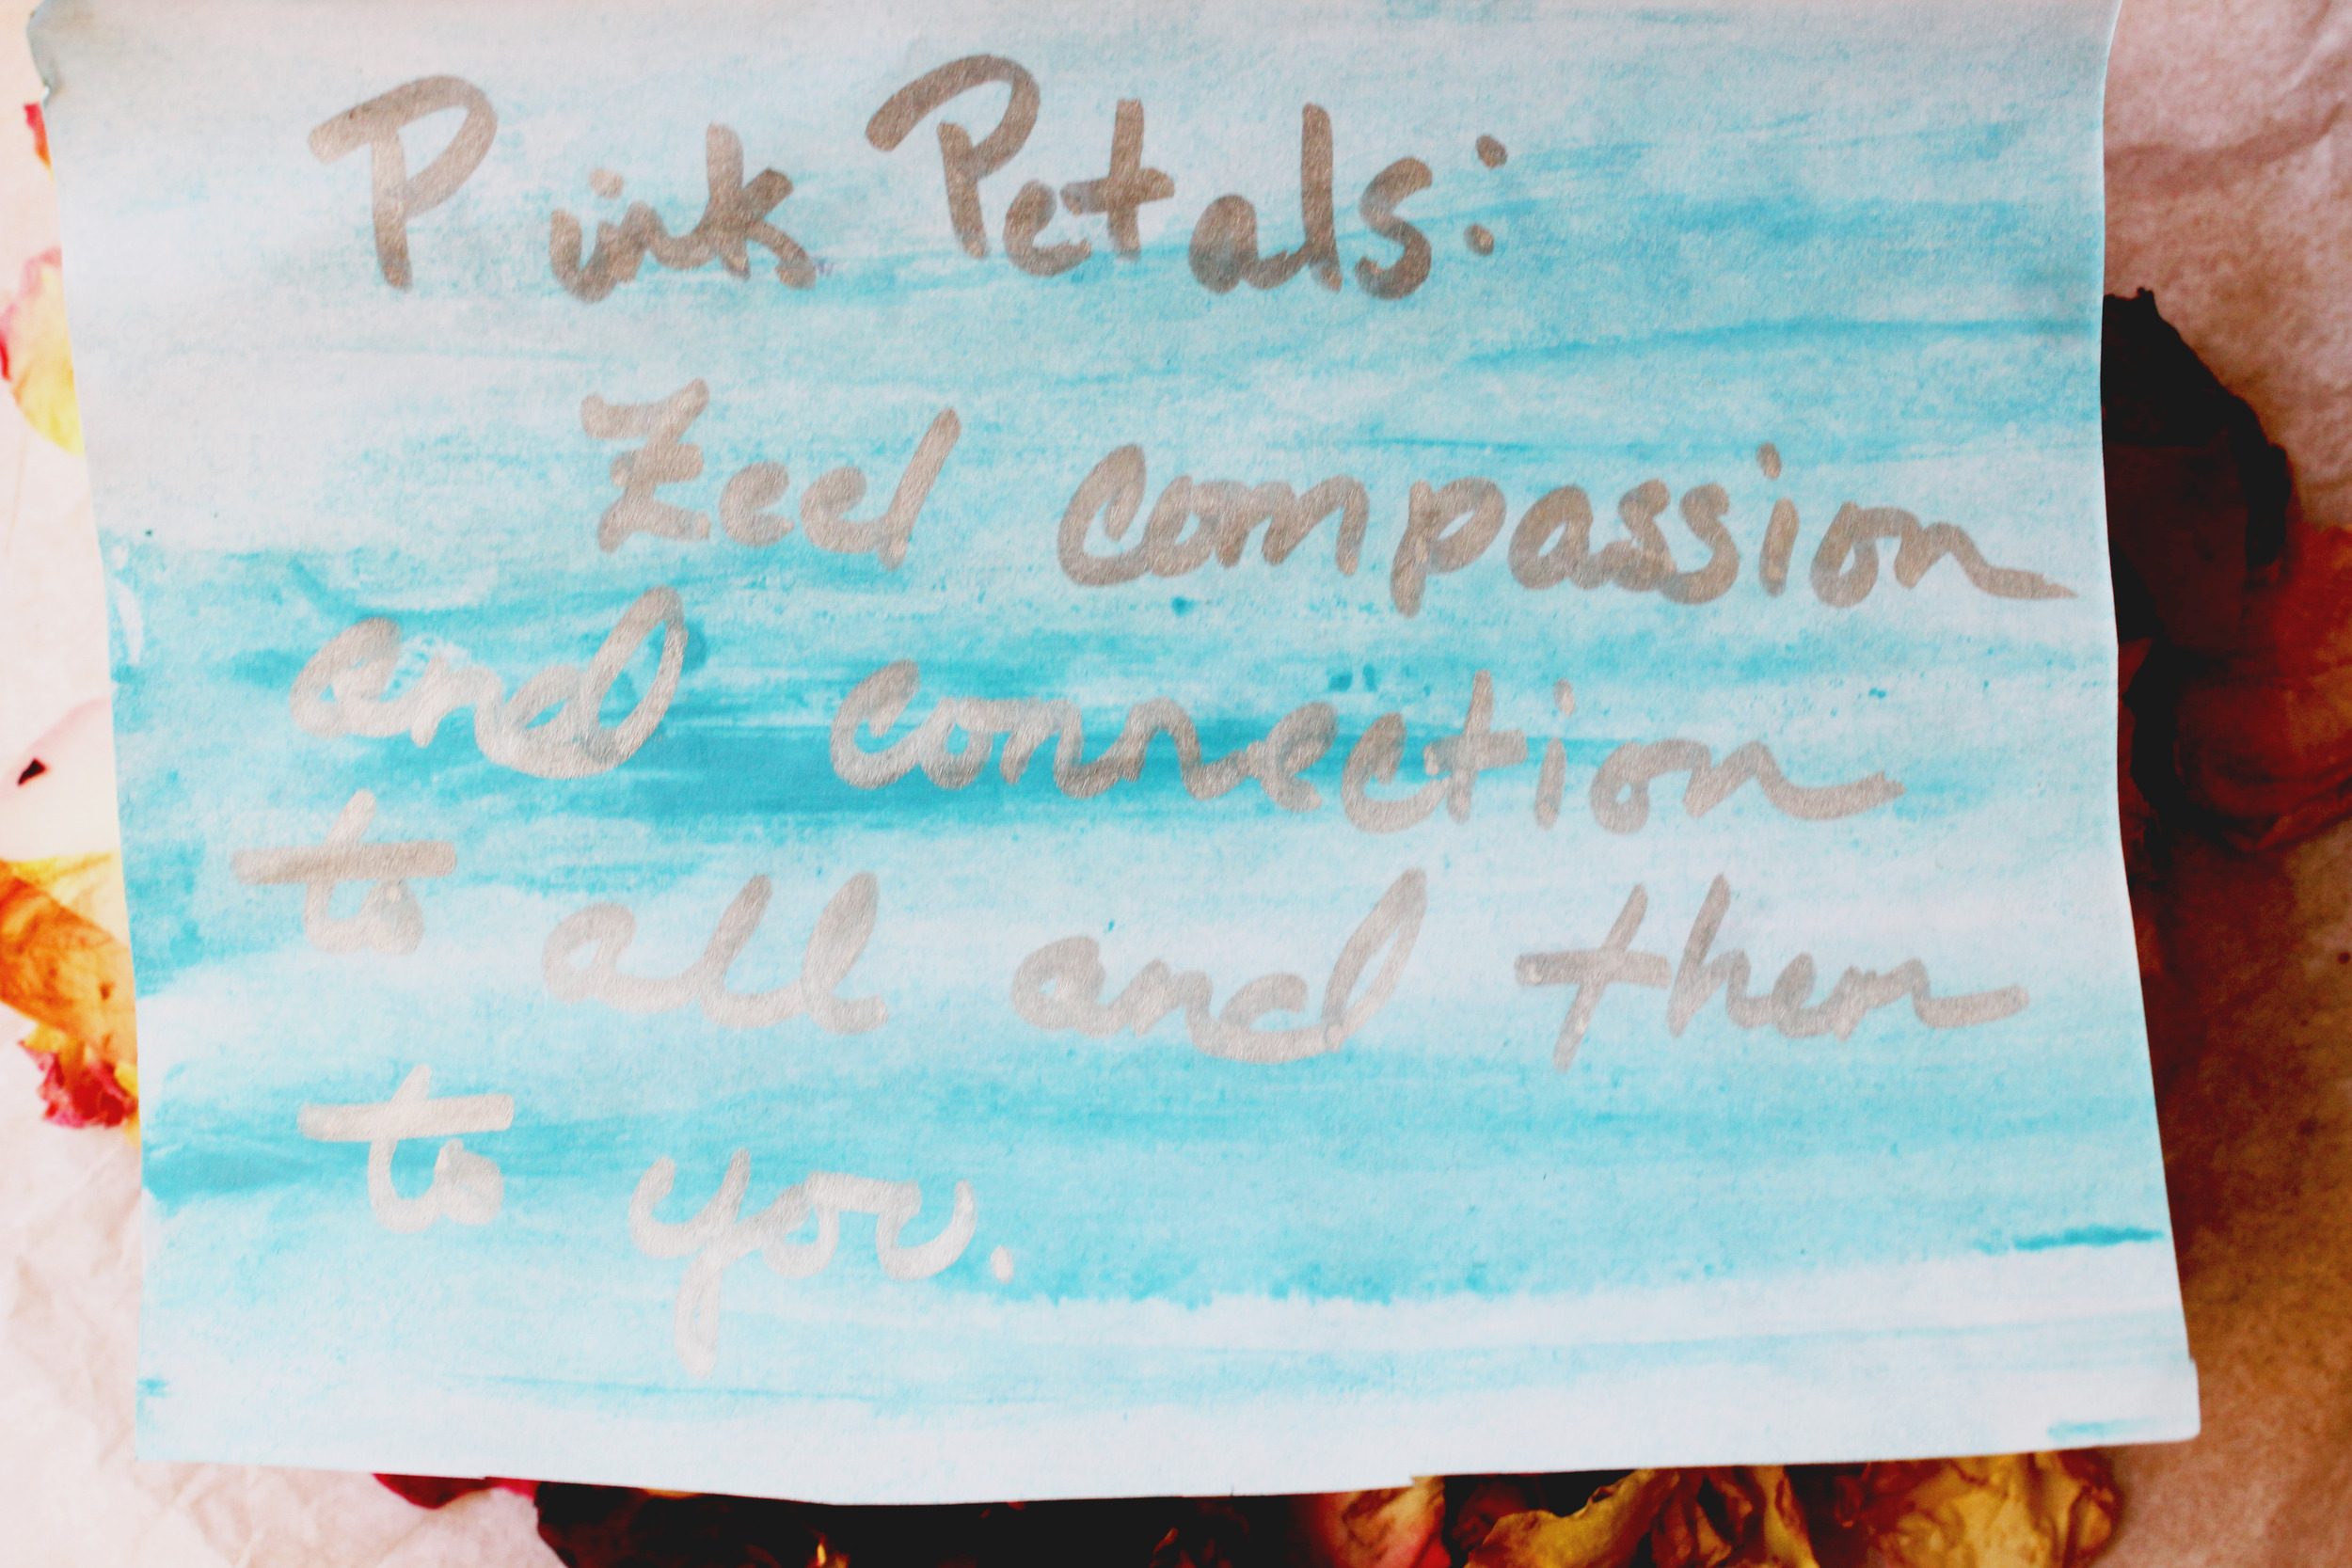 Pink Petals:
Feel compassion
and connection
to all and then
to you.